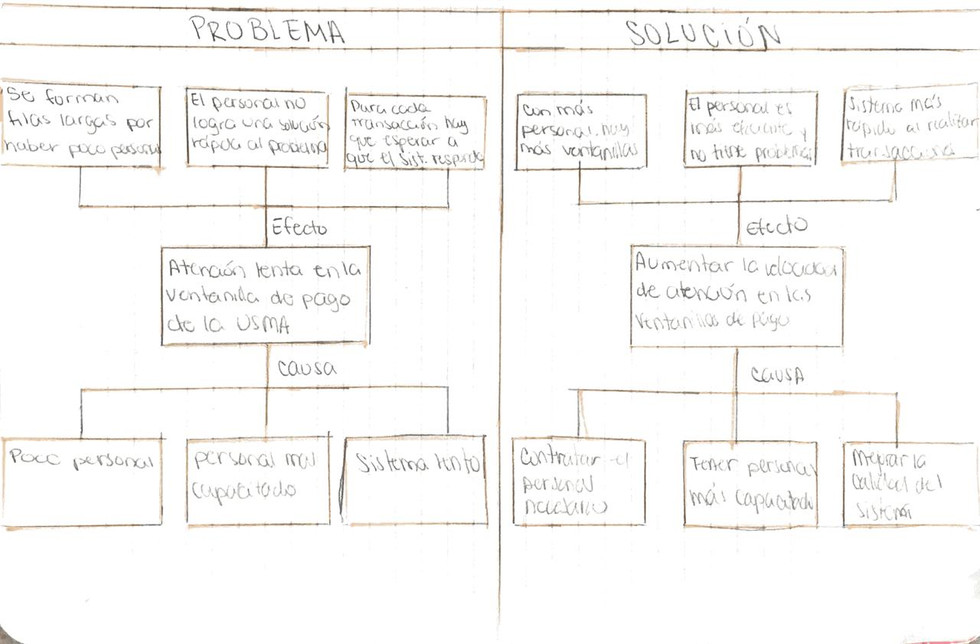 PROBLEMA
Se forman
filas largas por
haber poco personal
El personal no
logra una solución
rápida al problema
Para cada
transacción hay
que esperar a
que el sist. responda
Efecto
Atención lenta en la
ventanilla de pago
de la USMA
causa
Poco personal
personal mal
capacitado
Sistema lento
SOLUCIÓN
Con más
personal, hay
más ventanillas
El personal es
más eficiente y
no tiene problemas
Sistema más
rápido al realizar
transacciones
Efecto
Aumentar la velocidad
de atención en las
ventanillas de pago
CAUSA
Contratar el
personal
necesario
Tener personal
más capacitado
Mejorar la
calidad del
sistema